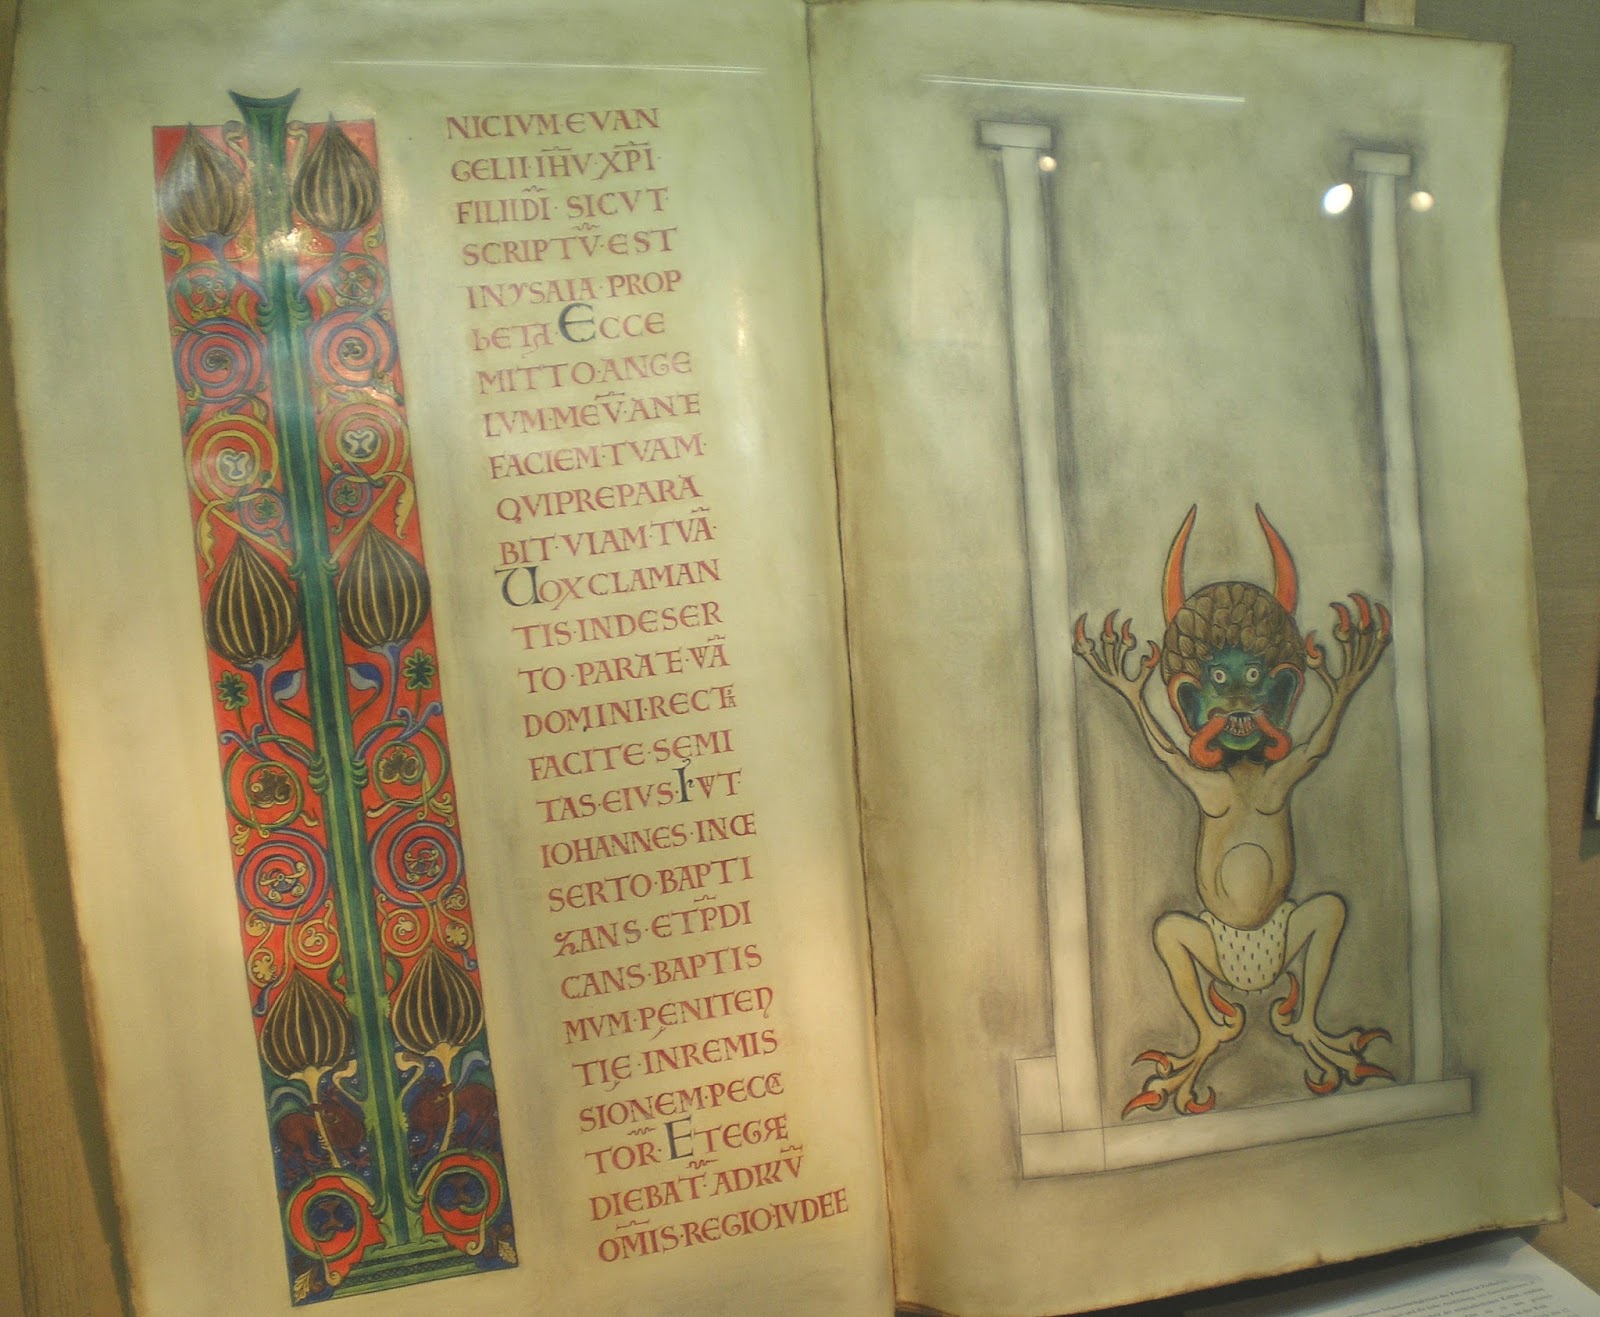 NICIVM EVAN
GELII·IHV·XPI·
FILII DI· SICVT
SCRIPTV·EST
IN YSAIA·PROP
hETA·ECCE
MITTO·ANGE
LVM·MEV·ANTE
FACIEM·TVAM·
QVI PREPARA
BIT·VIAM·TVA·
VOX CLAMAN
TIS·IN DESER
TO·PARATE·VIA
DOMINI·RECTAS
FACITE·SEMI
TAS·EIVS·
IOHANNES·IN
SERTO·BAPTI
ZANS·ET PDI
CANS·BAPTIS
MVM·PENITEN
TIE·IN REMIS
SIONEM·PECCA
TOR·ET EGRE
DIEBAT·AD
OMIS·REGIO·IVDEE